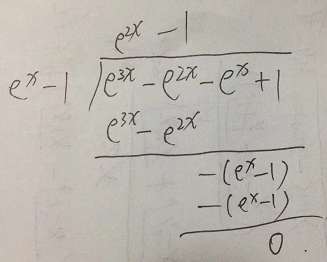 e^{2x} - 1
e^x - 1 ) e^{3x} - e^{2x} - e^x + 1
e^{3x} - e^{2x}
-(e^x - 1)
-(e^x - 1)
0.